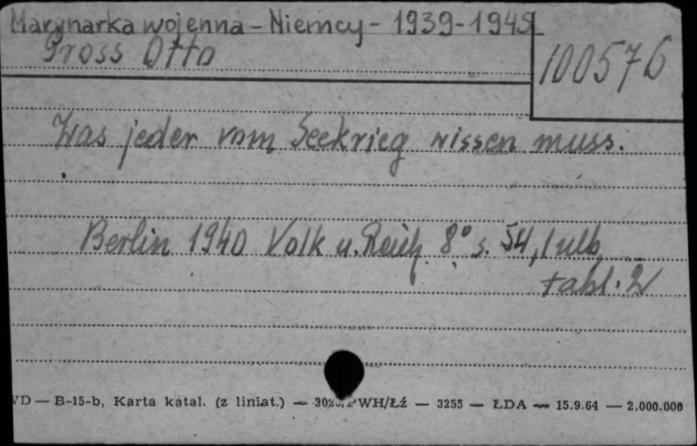 Marynarka wojenna - Niemcy - 1939-1945
Gross Otto
100576
Was jeder vom Seekrieg wissen muss.
Berlin 1940 Volk u. Reich 8° s. 54, 1 ulb,
tabl. 2
VD — B-15-b, Karta katal. (z liniat.) — WH/Łź — 3255 — ŁDA — 15.9.64 — 2.000.000